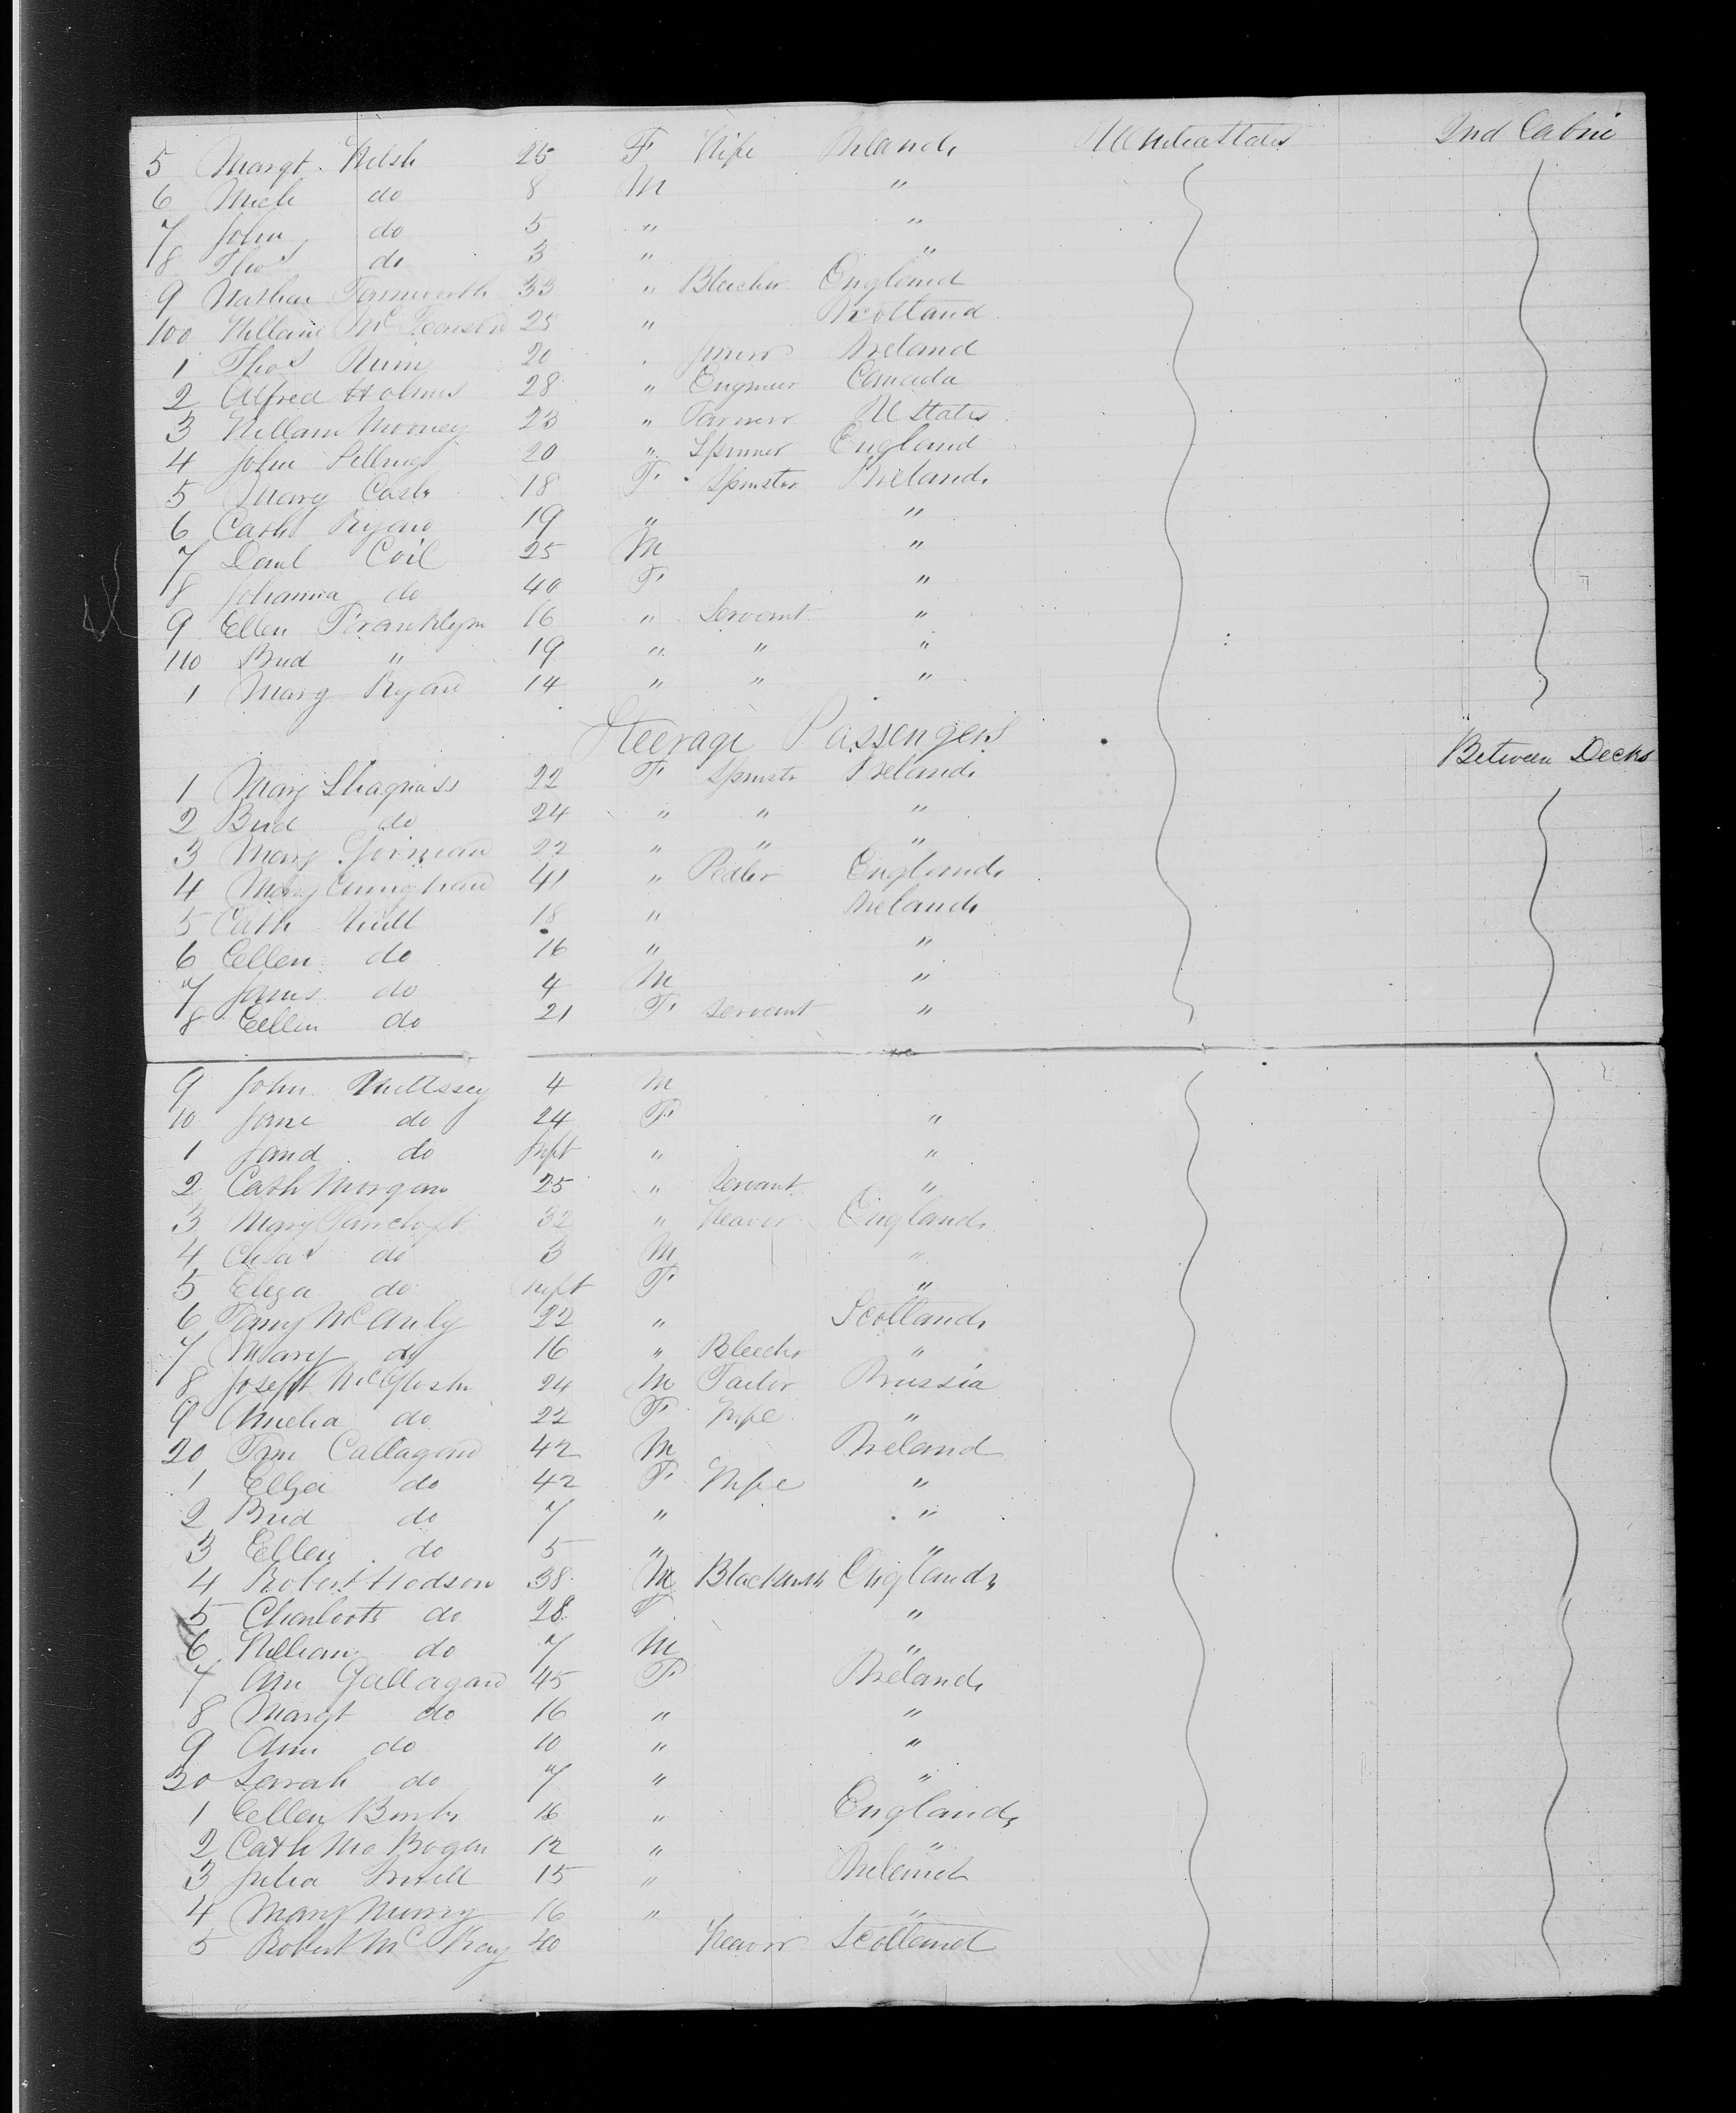 5 Margt Welsh 25 F Wife Ireland United States 2nd Cabin
6 Mich do 8 M "
7 John do 5 " "
8 Thos do 3 " "
9 Nathan Farnworth 33 " Bleecher England
100 William Mc 25 " Scotland
1 Thos 20 Ireland
2 Alfred Holmes 28 " Engineer Canada
3 William Mooney 23 " Farmer U States
4 John Pilling 20 " Spinner England
5 Mary Cash 18 F Spinster Ireland
6 Cath Ryan 19 " "
7 Danl Coil 25 M "
8 Johanna do 40 F "
9 Ellen Franklyn 16 " Servant "
110 Brid " 19 " " "
1 Marg Ryan 14 " " "
Steerage Passengers
Between Decks
1 Mary 22 F Spinstr Ireland
2 Brid do 24 " " "
3 Mary Gorman 22 " " "
4 Mary 41 " Pedler England
5 Cath 18 " Ireland
6 Ellen do 16 " "
7 James do 4 M "
8 Ellen do 21 F Servant "
9 John 4 M
10 Jane do 24 F "
1 do Inft " "
2 Cath Morgan 25 " Servant "
3 Mary 32 " Weaver England
4 Chas do 3 M "
5 Eliza do Inft F "
6 Mc Auly 22 " Scotland
7 Mary do 16 " Bleecher "
8 Joseph 24 M Tailor Prussia
9 Amelia do 22 F Wife "
20 Callagan 42 M Ireland
1 Eliza do 42 F Wife "
2 Brid do 7 " "
3 Ellen do 5 " "
4 Robert Hodson 38 M Blacksmith England
5 Charloote do 28 F "
6 William do 7 M "
7 Ann Gallagan 45 F Ireland
8 Margt do 16 " "
9 Ann do 10 " "
30 Sarah do 7 " "
1 Ellen 16 " England
2 Cath Mc Bogan 12 " "
3 Julia 15 " Ireland
4 Mary 16 " "
5 Robert Mc Kay 40 Weaver Scotland